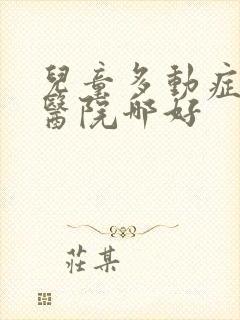 兒童多動症
醫院哪好
莊某